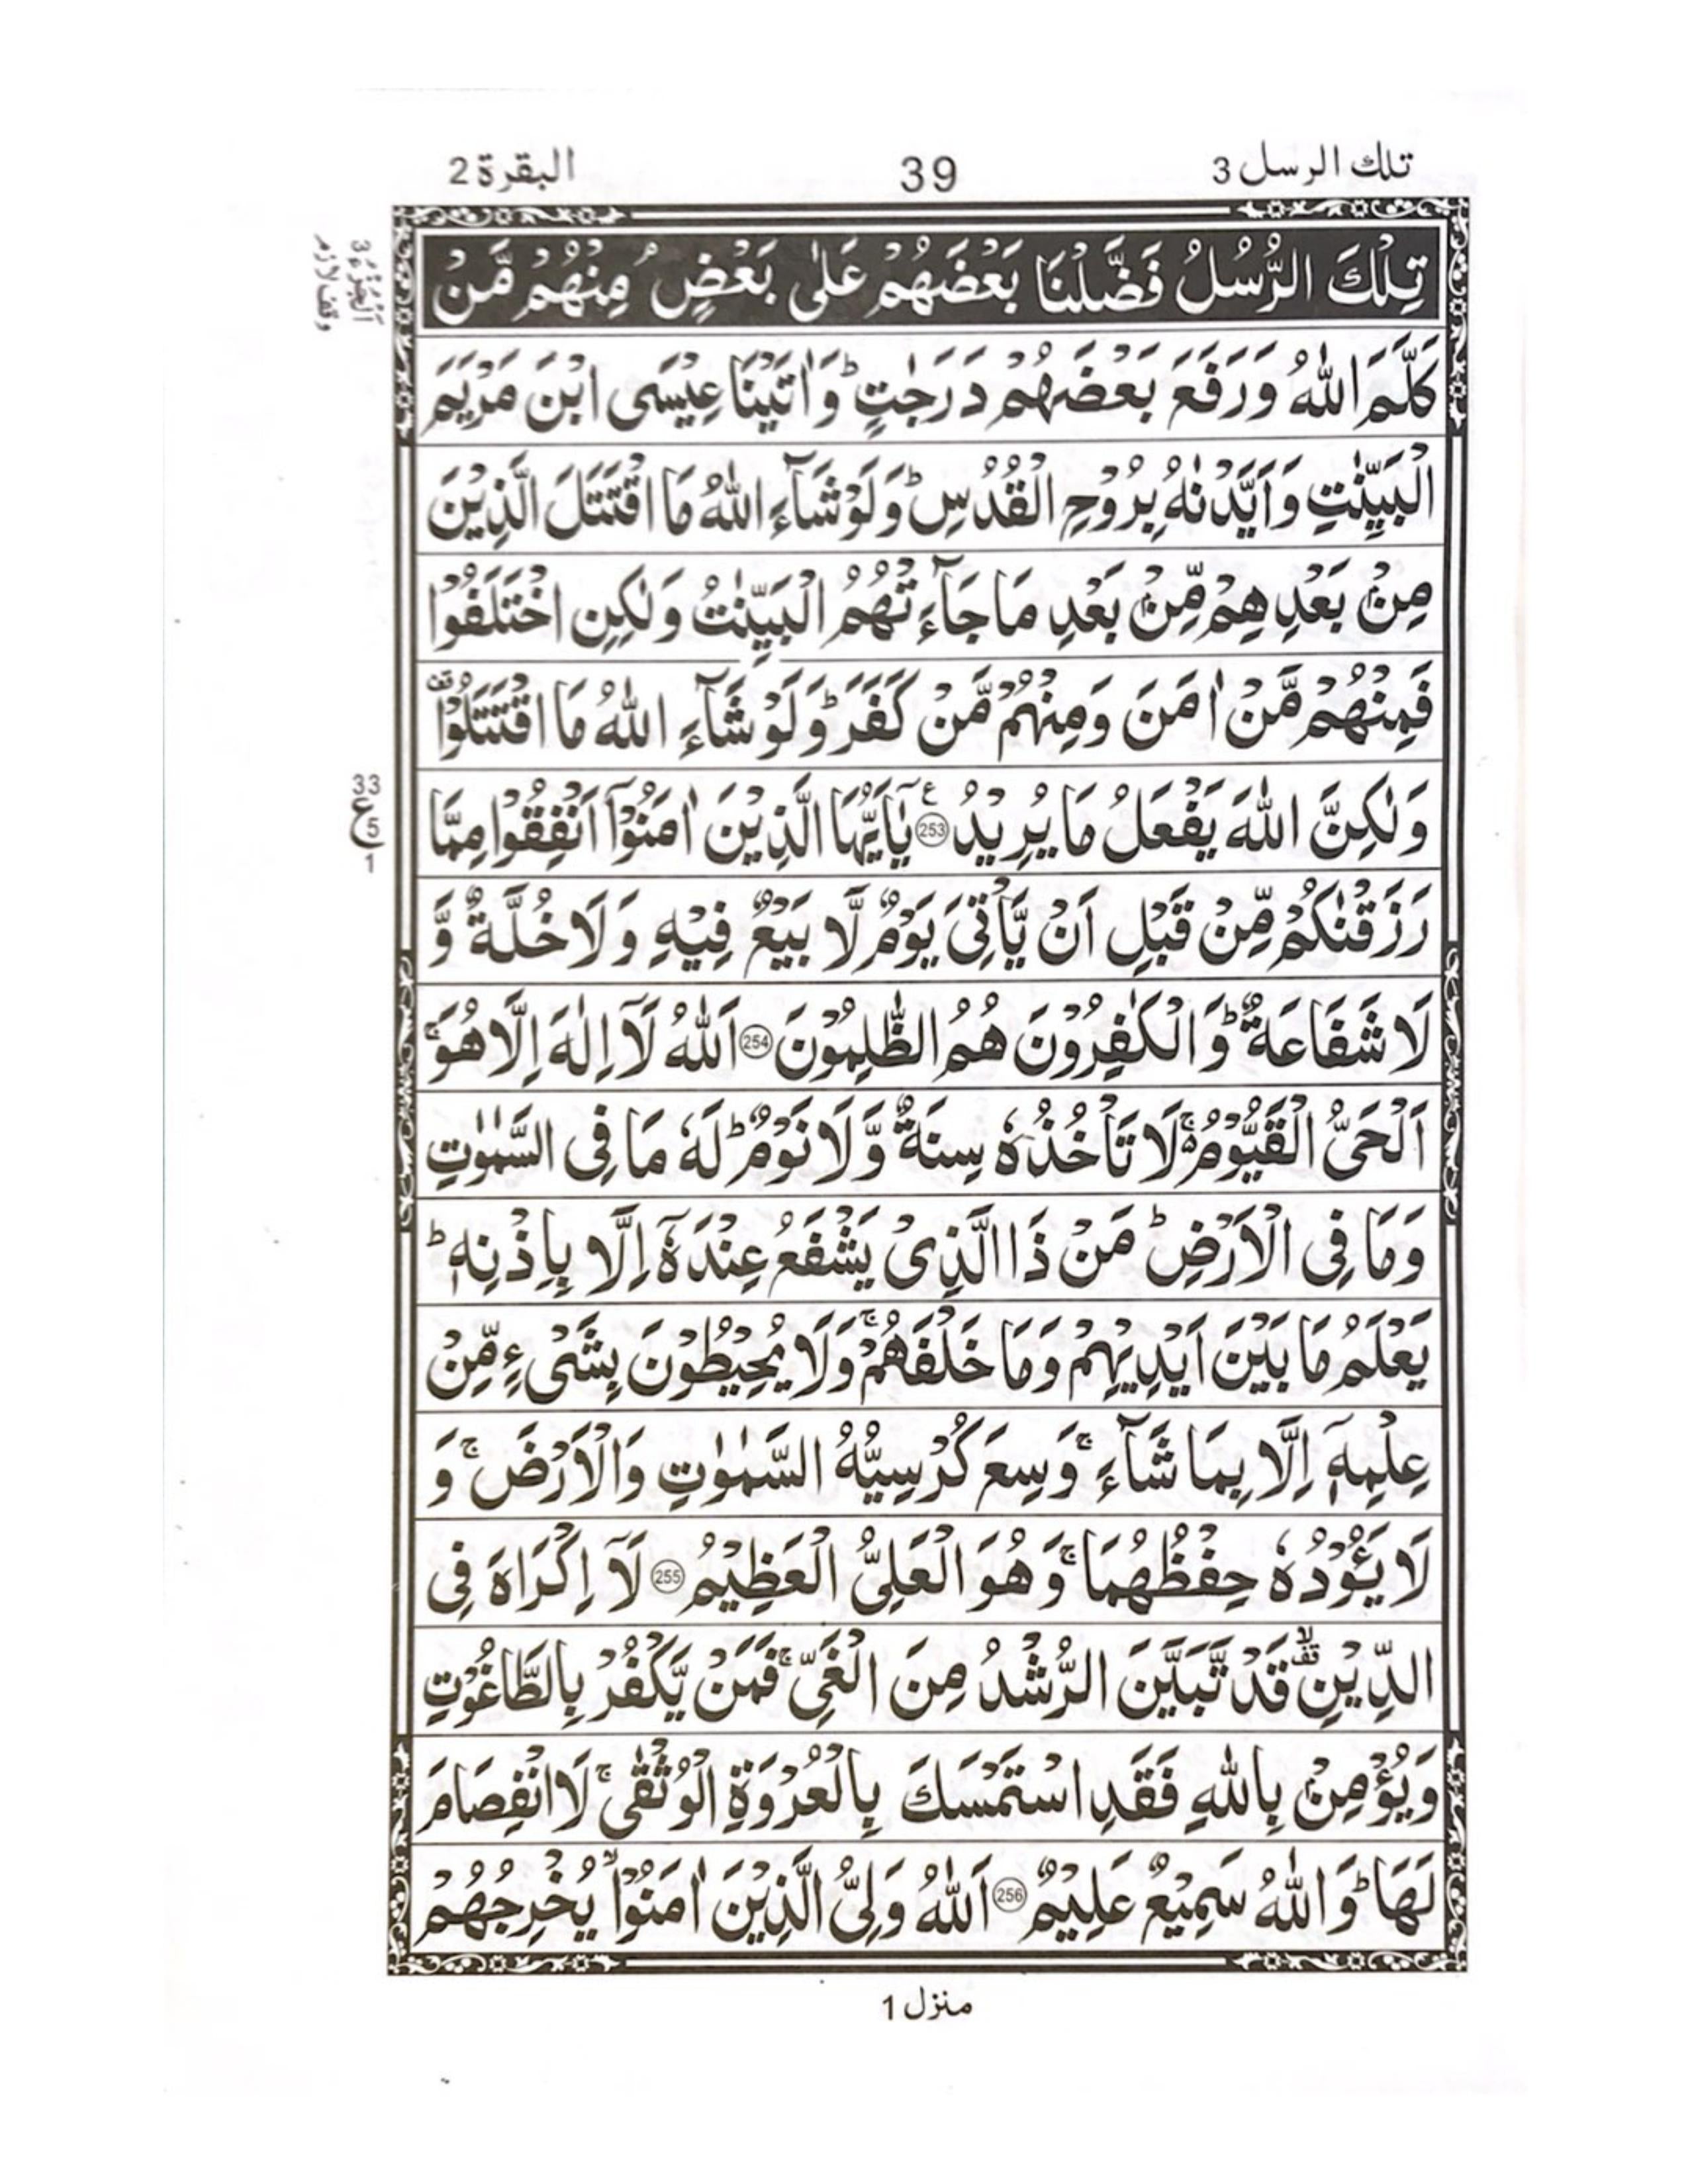 تلك الرسل 3
39
البقرة 2
الجزء 3
وقف لازم
تِلْكَ الرُّسُلُ فَضَّلْنَا بَعْضَهُمْ عَلٰى بَعْضٍ ۘ مِنْهُمْ مَّنْ
كَلَّمَ اللّٰهُ وَرَفَعَ بَعْضَهُمْ دَرَجٰتٍ ؕ وَاٰتَيْنَا عِيْسَى ابْنَ مَرْيَمَ
الْبَيِّنٰتِ وَاَيَّدْنٰهُ بِرُوْحِ الْقُدُسِ ؕ وَلَوْ شَآءَ اللّٰهُ مَا اقْتَتَلَ الَّذِيْنَ
مِنْۢ بَعْدِهِمْ مِّنْۢ بَعْدِ مَا جَآءَتْهُمُ الْبَيِّنٰتُ وَلٰكِنِ اخْتَلَفُوْا
فَمِنْهُمْ مَّنْ اٰمَنَ وَمِنْهُمْ مَّنْ كَفَرَ ؕ وَلَوْ شَآءَ اللّٰهُ مَا اقْتَتَلُوْا ۟قف
وَلٰكِنَّ اللّٰهَ يَفْعَلُ مَا يُرِيْدُ ع 253 يٰٓاَيُّهَا الَّذِيْنَ اٰمَنُوْٓا اَنْفِقُوْا مِمَّا
33
ع
5
1
رَزَقْنٰكُمْ مِّنْ قَبْلِ اَنْ يَّاْتِىَ يَوْمٌ لَّا بَيْعٌ فِيْهِ وَلَا خُلَّةٌ وَّ
لَا شَفَاعَةٌ ؕ وَالْكٰفِرُوْنَ هُمُ الظّٰلِمُوْنَ 254 اَللّٰهُ لَآ اِلٰهَ اِلَّا هُوَ ۚ
اَلْحَىُّ الْقَيُّوْمُ ۚ لَا تَاْخُذُهٗ سِنَةٌ وَّلَا نَوْمٌ ؕ لَهٗ مَا فِى السَّمٰوٰتِ
وَمَا فِى الْاَرْضِ ؕ مَنْ ذَا الَّذِىْ يَشْفَعُ عِنْدَهٗٓ اِلَّا بِاِذْنِهٖ ؕ
يَعْلَمُ مَا بَيْنَ اَيْدِيْهِمْ وَمَا خَلْفَهُمْ ۚ وَلَا يُحِيْطُوْنَ بِشَىْءٍ مِّنْ
عِلْمِهٖٓ اِلَّا بِمَا شَآءَ ۚ وَسِعَ كُرْسِيُّهُ السَّمٰوٰتِ وَالْاَرْضَ ۚ وَ
لَا يَـُٔوْدُهٗ حِفْظُهُمَا ۚ وَهُوَ الْعَلِىُّ الْعَظِيْمُ 255 لَآ اِكْرَاهَ فِى
الدِّيْنِ ۙقف قَدْ تَّبَيَّنَ الرُّشْدُ مِنَ الْغَىِّ ۚ فَمَنْ يَّكْفُرْ بِالطَّاغُوْتِ
وَيُؤْمِنْۢ بِاللّٰهِ فَقَدِ اسْتَمْسَكَ بِالْعُرْوَةِ الْوُثْقٰى ۚ لَا انْفِصَامَ
لَهَا ؕ وَاللّٰهُ سَمِيْعٌ عَلِيْمٌ 256 اَللّٰهُ وَلِىُّ الَّذِيْنَ اٰمَنُوْا ۙ يُخْرِجُهُمْ
منزل 1